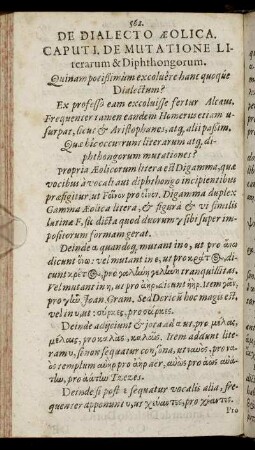 562.
DE DIALECTO ÆOLICA.
CAPUT I. DE MUTATIONE LI-
terarum & Diphthongorum.
Quinam potißimùm excoluêre hanc quoque
Dialectum?
Ex professo eam excoluisse fertur Alcæus.
Frequenter tamen eandem Homerus etiam u-
surpat, sicut & Aristophanes, atq́, alij passim.
Quæ hîc occurrunt literarum atq́, di-
phthongorum mutationes?
Propria Æolicorum litera est Digamma, quæ
vocibus à vocali aut diphthongo incipientibus
præfigitur, ut pro οἶνον. Digamma duplex
Gamma Æolica litera, & figurâ & vi similis
Latinæ F, sic dicta quod duorum γ sibi super im-
positorum formam gerat.
Deinde α quandoq́ mutant in o, ut pro ἄνω
dicunt ὄνω: vel mutant in ε, ut pro κράτ@, di-
cunt κρέτ@, pro γαλήνη tranquillitas.
Vel mutant in η, ut pro Item
pro Joan. Gram. Sed Doricũ hoc magis est,
vel in υ, ut: σύρκες, pro σάρκες.
Deinde adjiciunt & jota ad α ut pro μέλας,
μέλαις, pro καλὰς, καλαῖς. Item addunt lite-
ram υ, si non sequatur consona, ut ναῦος, pro να-
ὸς templum αὐὴρ pro ἀὴρ aër, αὔως pro ἀὼς
pro Tzetzes.
Deinde si post ε sequatur vocalis alia, fre-
quenter apponunt υ, ut pro
Pro